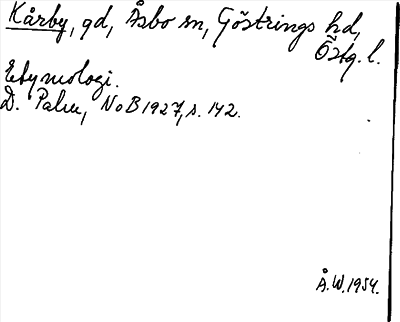 Kårby, gd, Åsbo sn, Göstrings hd,
Östg. l.
Etymologi.
D. Palm, NoB 1927, s. 142.
Å.W. 1954.